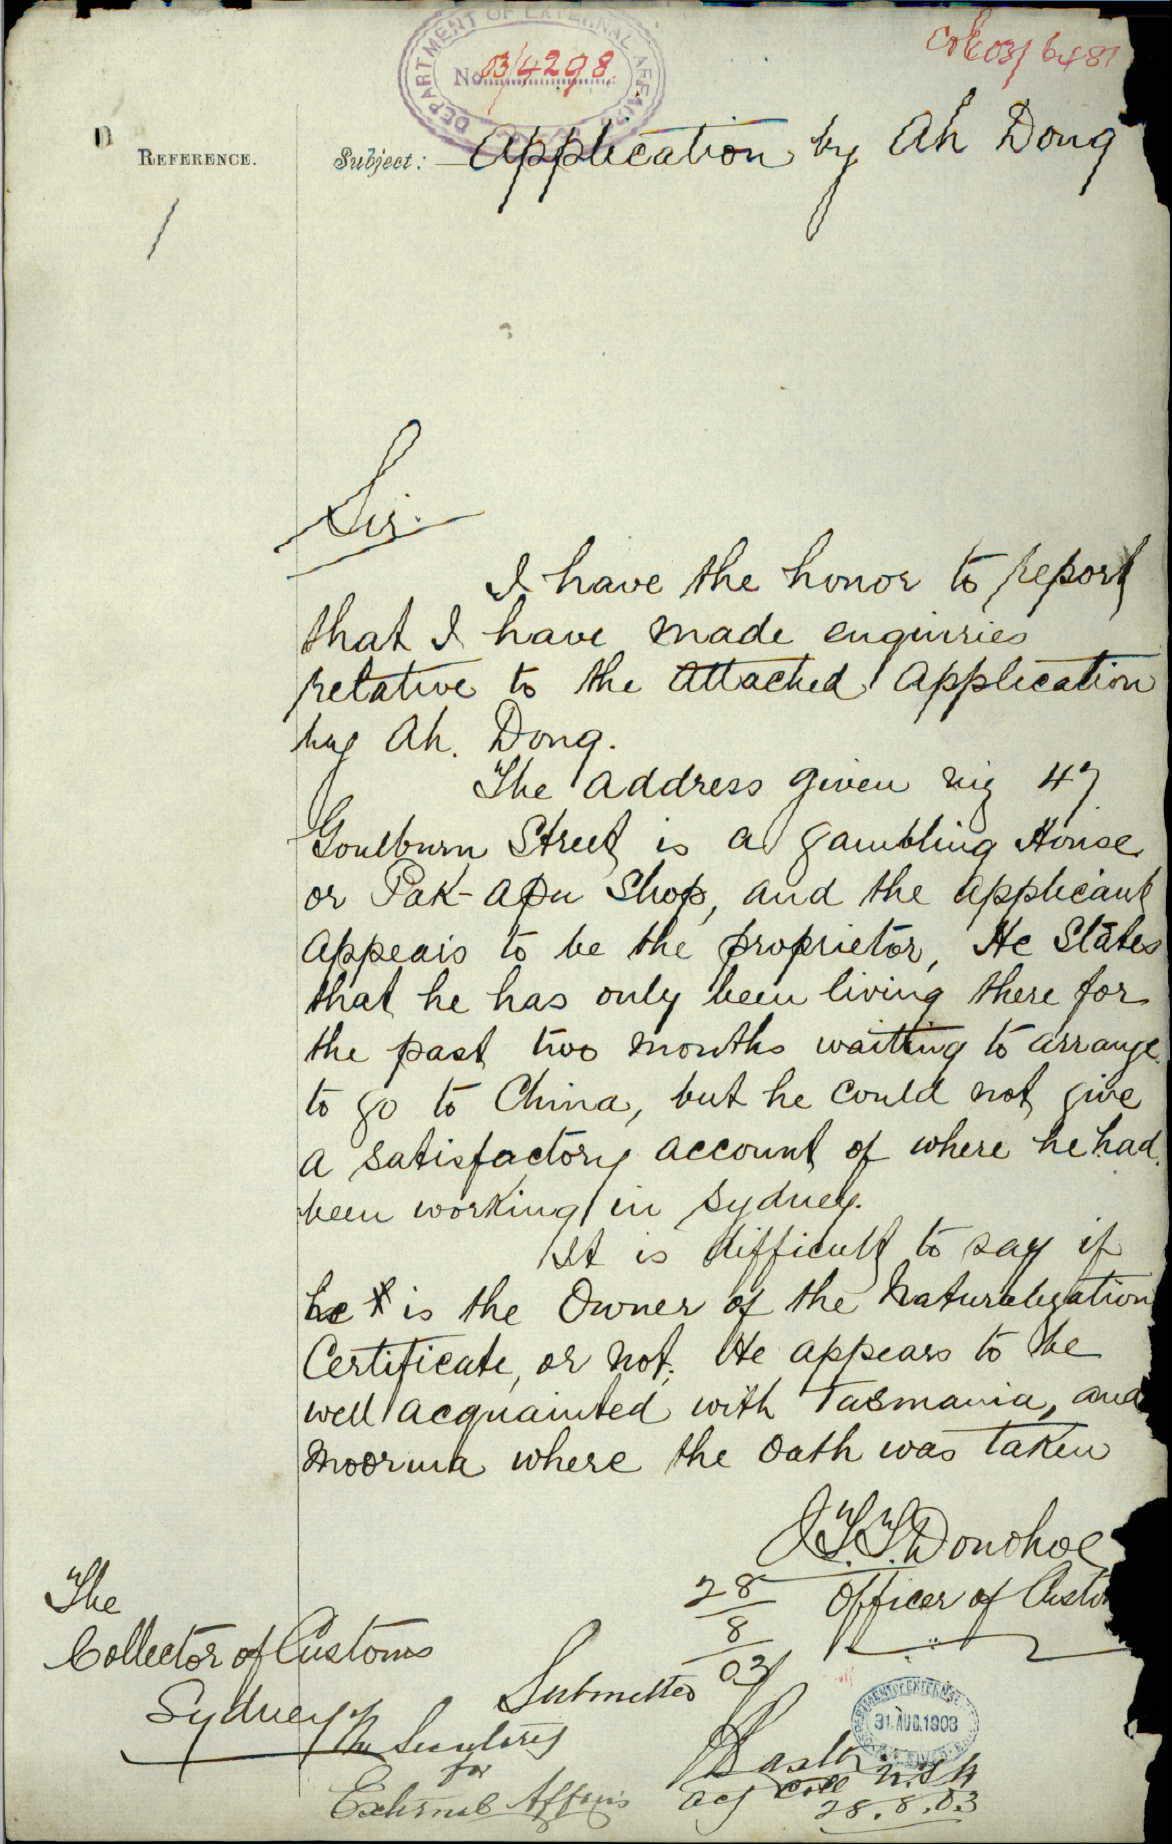 DEPARTMENT OF EXTERNAL AFFAIRS
No 03/4298
03/6481
REFERENCE.
Subject: Application by Ah Dong
Sir.
I have the honor to report
that I have made enquiries
relative to the attached Application
by Ah. Dong.
The address given viz 47
Goulburn Street is a gambling House
or Pak-apu Shop, and the applicant
appears to be the proprietor, He States
that he has only been living there for
the past two months waiting to arrange
to go to China, but he could not give
a satisfactory account of where he had
been working in Sydney.
It is difficult to say if
he is the Owner of the Naturalization
Certificate, or not; He appears to be
well acquainted with Tasmania, and
Moorina where the Oath was taken
J.T.T. Donohoe
Officer of Custo
28
8
03
The
Collector of Customs
Sydney
Submitted
The Secretary
for
External Affairs
31 AUG. 1903
Baxter
Acg Coll N.S.W
28.8.03